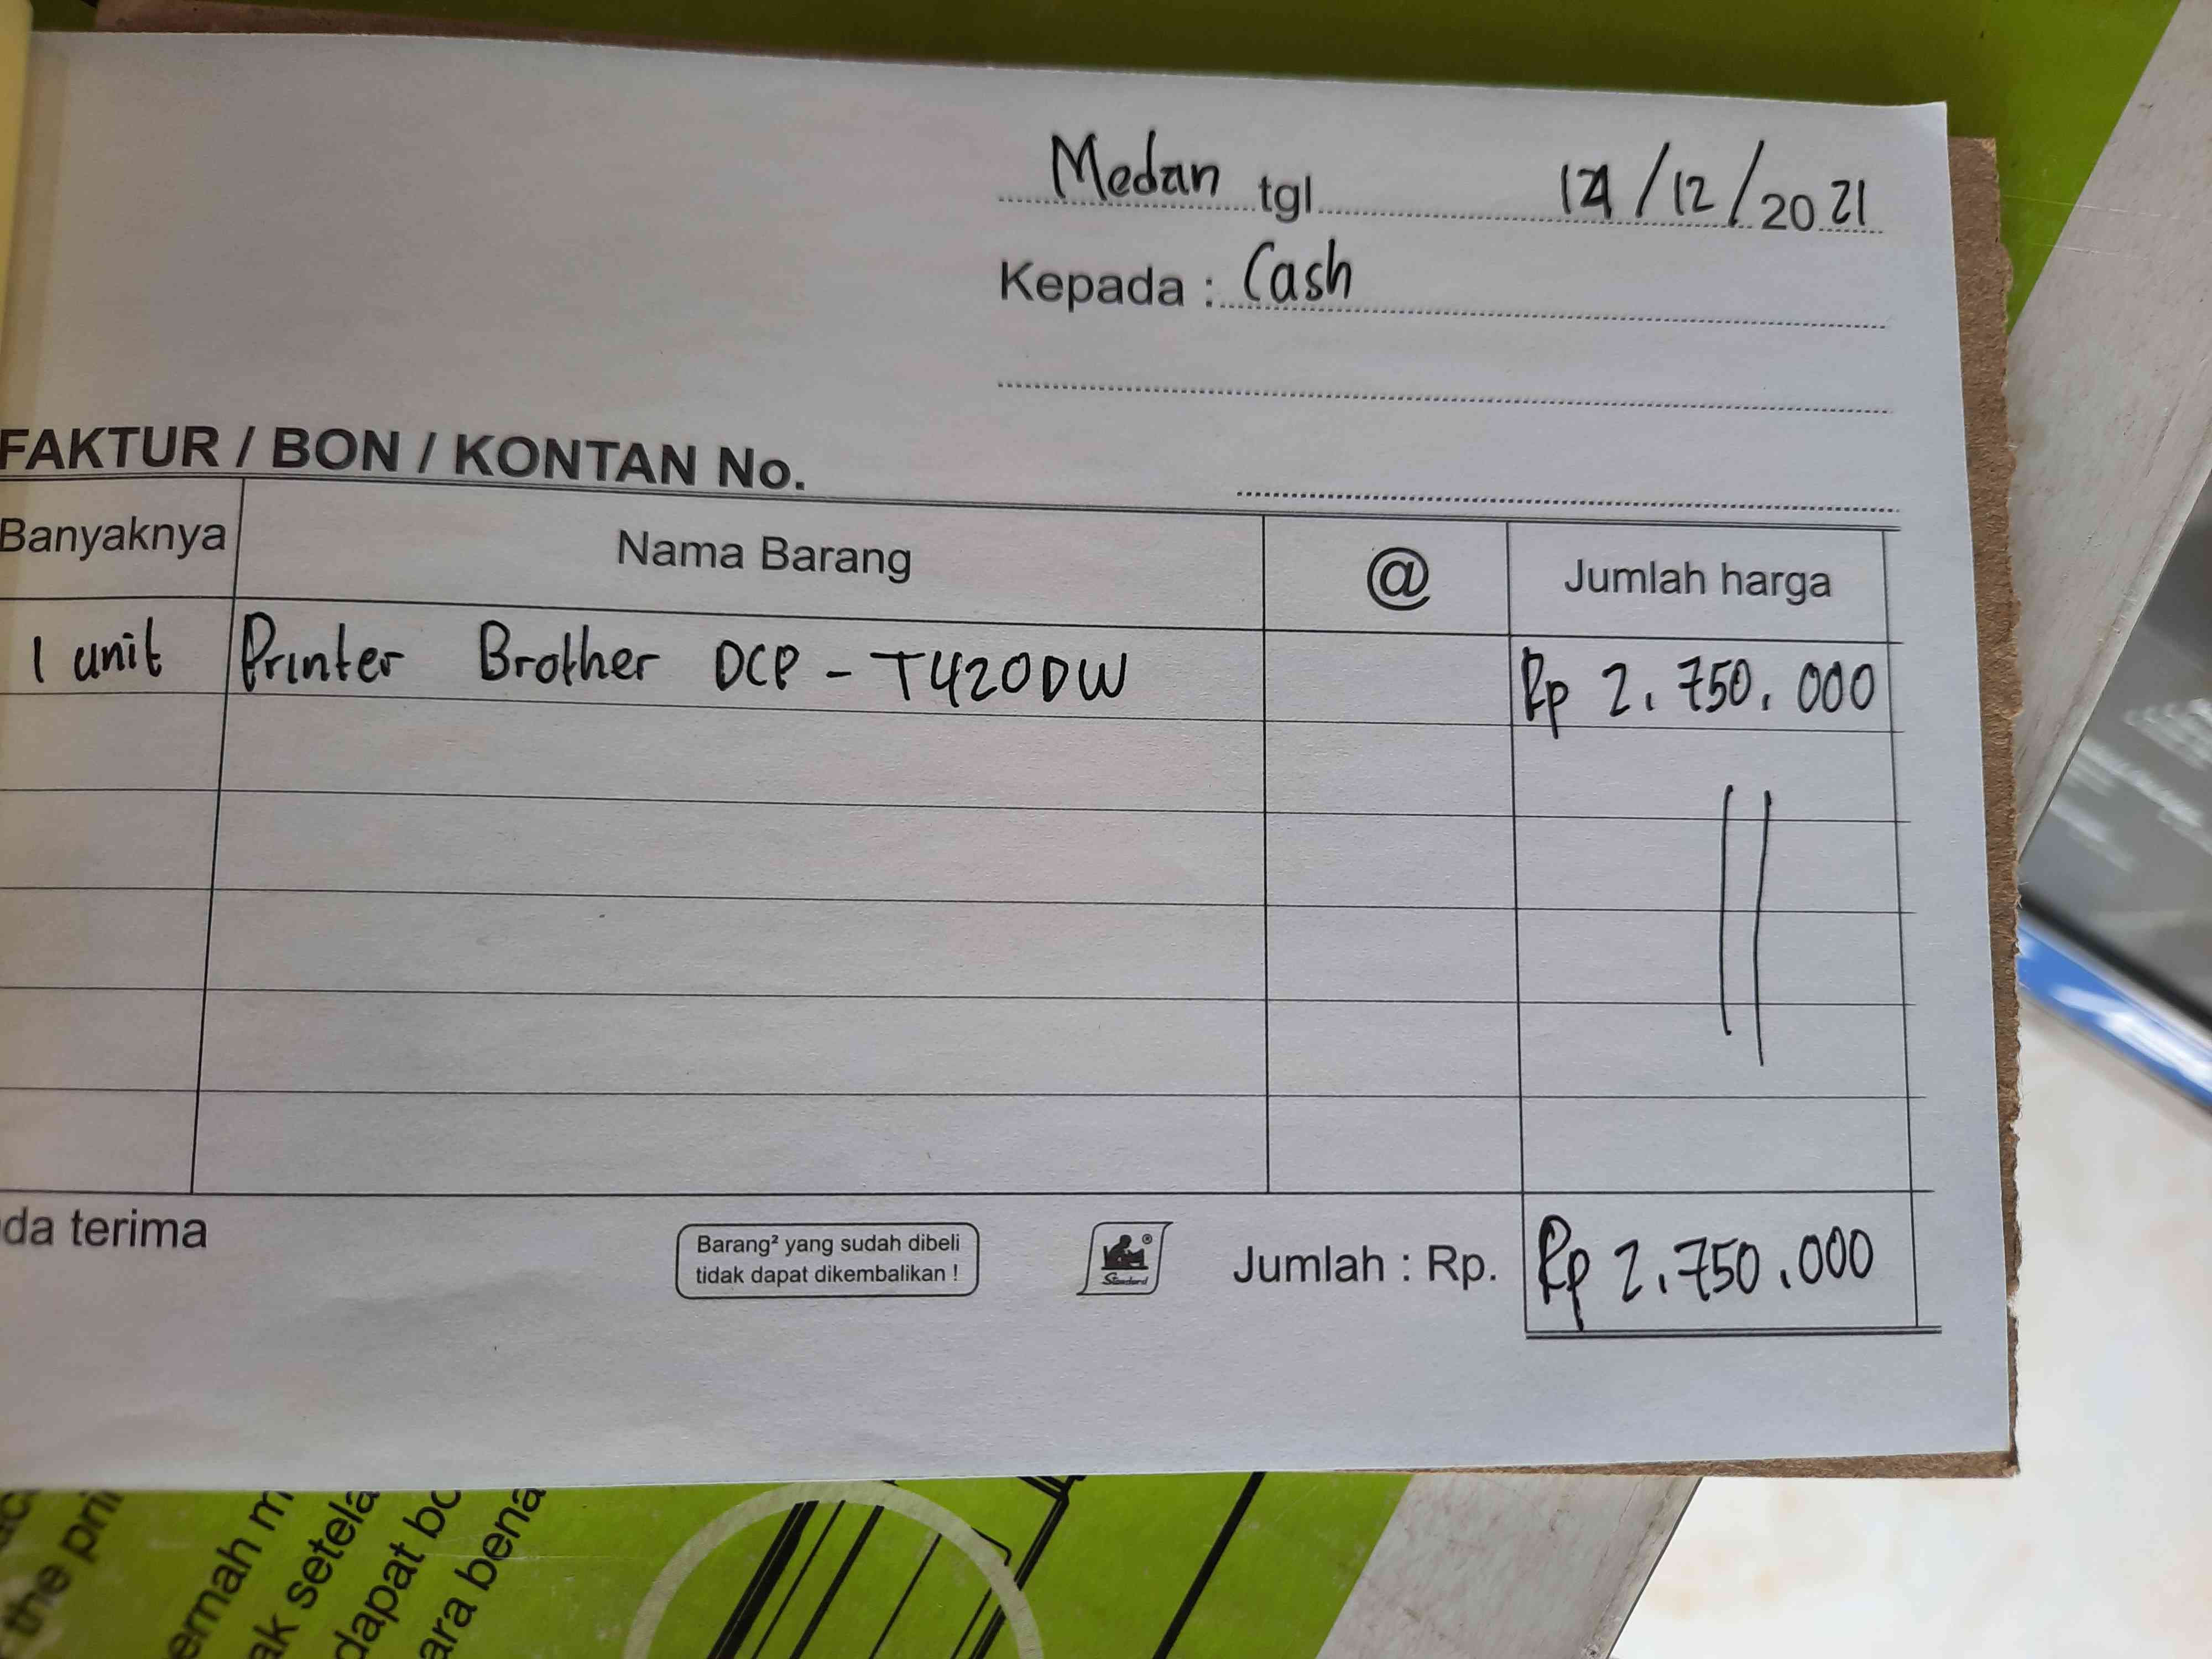 Medan tgl 14/12/2021
Kepada : Cash
FAKTUR / BON / KONTAN No.
Banyaknya Nama Barang @ Jumlah harga
1 unit Printer Brother DCP - T420DW Rp 2.750.000
da terima
Barang² yang sudah dibeli
tidak dapat dikembalikan !
Standard
®
Jumlah : Rp. Rp 2.750.000
the prin
ernah m
ak setela
dapat bo
ara bena